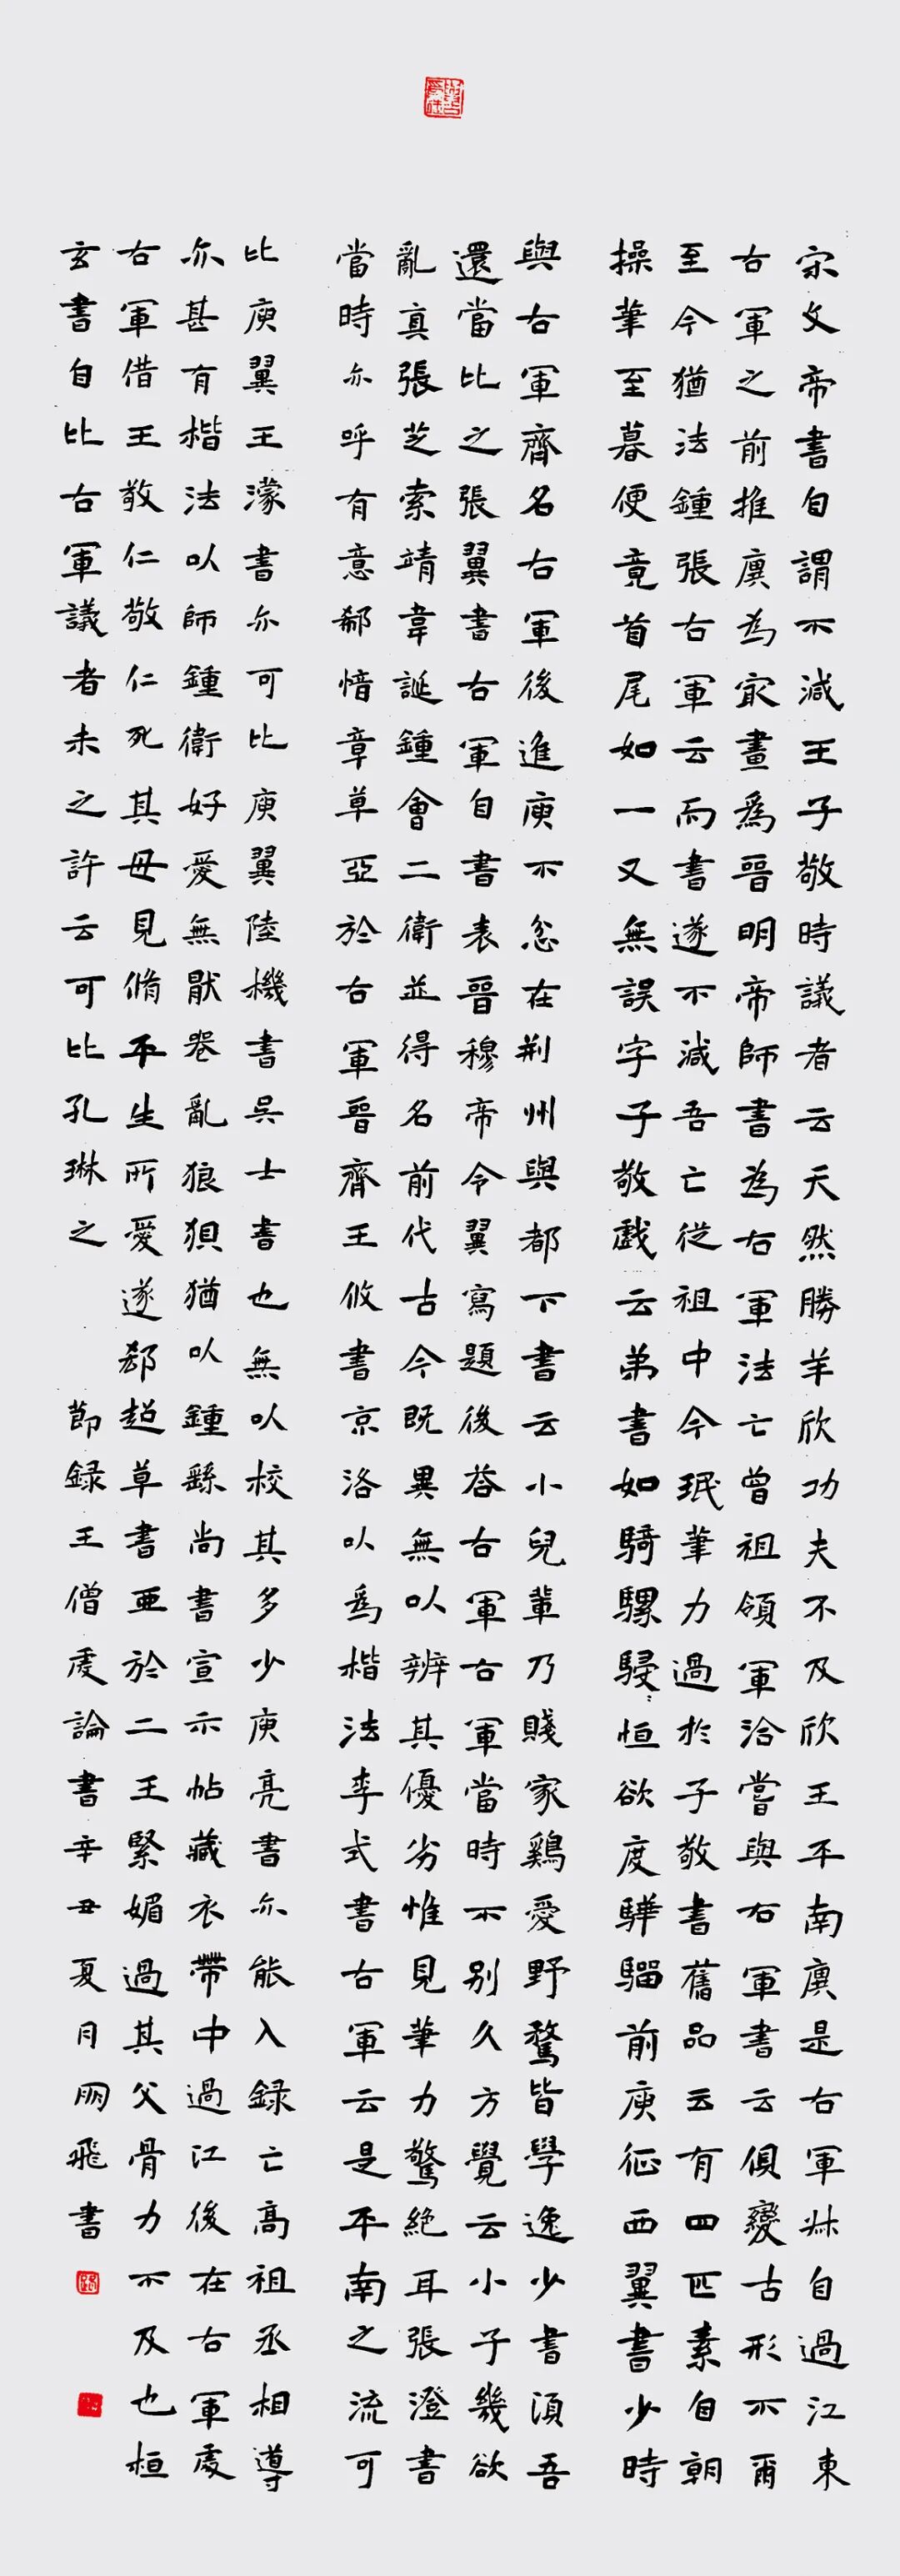 宋文帝書自謂不減王子敬時議者云天然勝羊欣功夫不及欣王平南廙是右軍叔自過江東
右軍之前推廙為最畫爲晉明帝師書為右軍法亡曾祖領軍洽嘗與右軍書云俱變古形不爾
至今猶法鍾張右軍云而書遂不減吾亡從祖中令珉筆力過於子敬書舊品云有四匹素自朝
操筆至暮便竟首尾如一又無誤字子敬戲云弟書如騎騾駸〻恒欲度驊騮前庾征西翼書少時
與右軍齊名右軍後進庾不忿在荆州與都下書云小兒輩乃賤家鷄愛野鶩皆學逸少書須吾
還當比之張翼書右軍自書表晉穆帝令翼寫題後答右軍右軍當時不別久方覺云小子幾欲
亂真張芝索靖韋誕鍾會二衛並得名前代古今既異無以辨其優劣惟見筆力驚絕耳張澄書
當時亦呼有意郗愔章草亞於右軍晉齊王攸書京洛以爲楷法李式書右軍云是平南之流可
比庾翼王濛書亦可比庾翼陸機書吳士書也無以校其多少庾亮書亦能入録亡高祖丞相導
亦甚有楷法以師鍾衛好愛無猒卷亂狼狽猶以鍾繇尚書宣示帖藏衣帶中過江後在右軍處
右軍借王敬仁敬仁死其母見脩平生所愛遂郗超草書亞於二王緊媚過其父骨力不及也桓
玄書自比右軍議者未之許云可比孔琳之 節録王僧虔論書辛丑夏月朋飛書